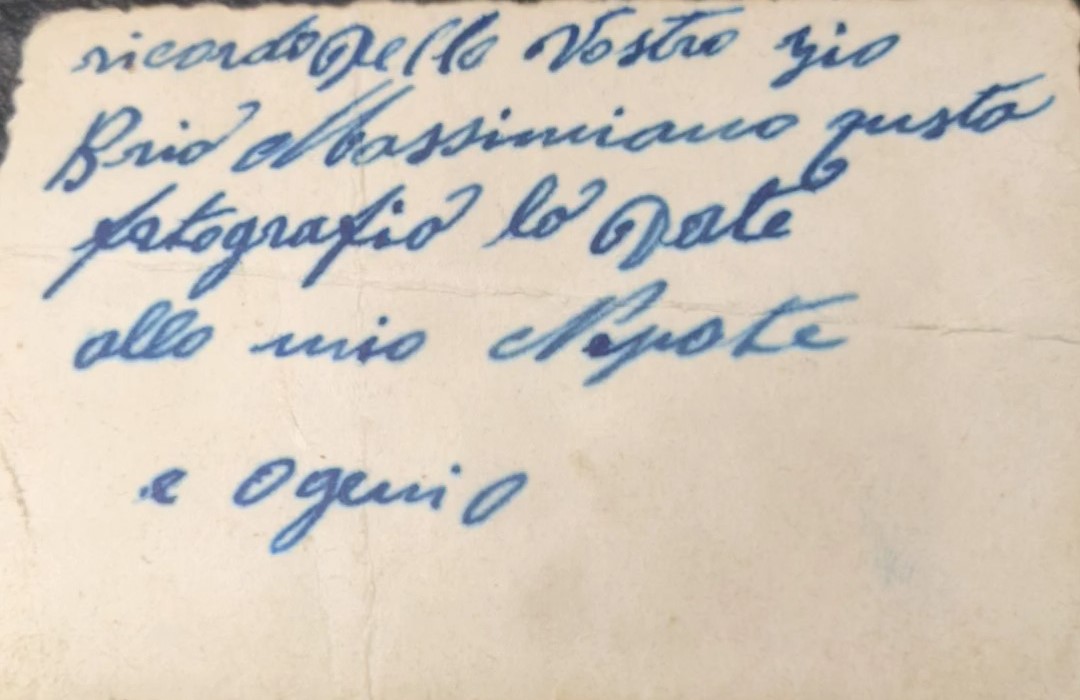 ricordo Dello Vostro zio
Brio Massimiano qusta
fotografia la Date
allo mio Nepote
e Ogenio